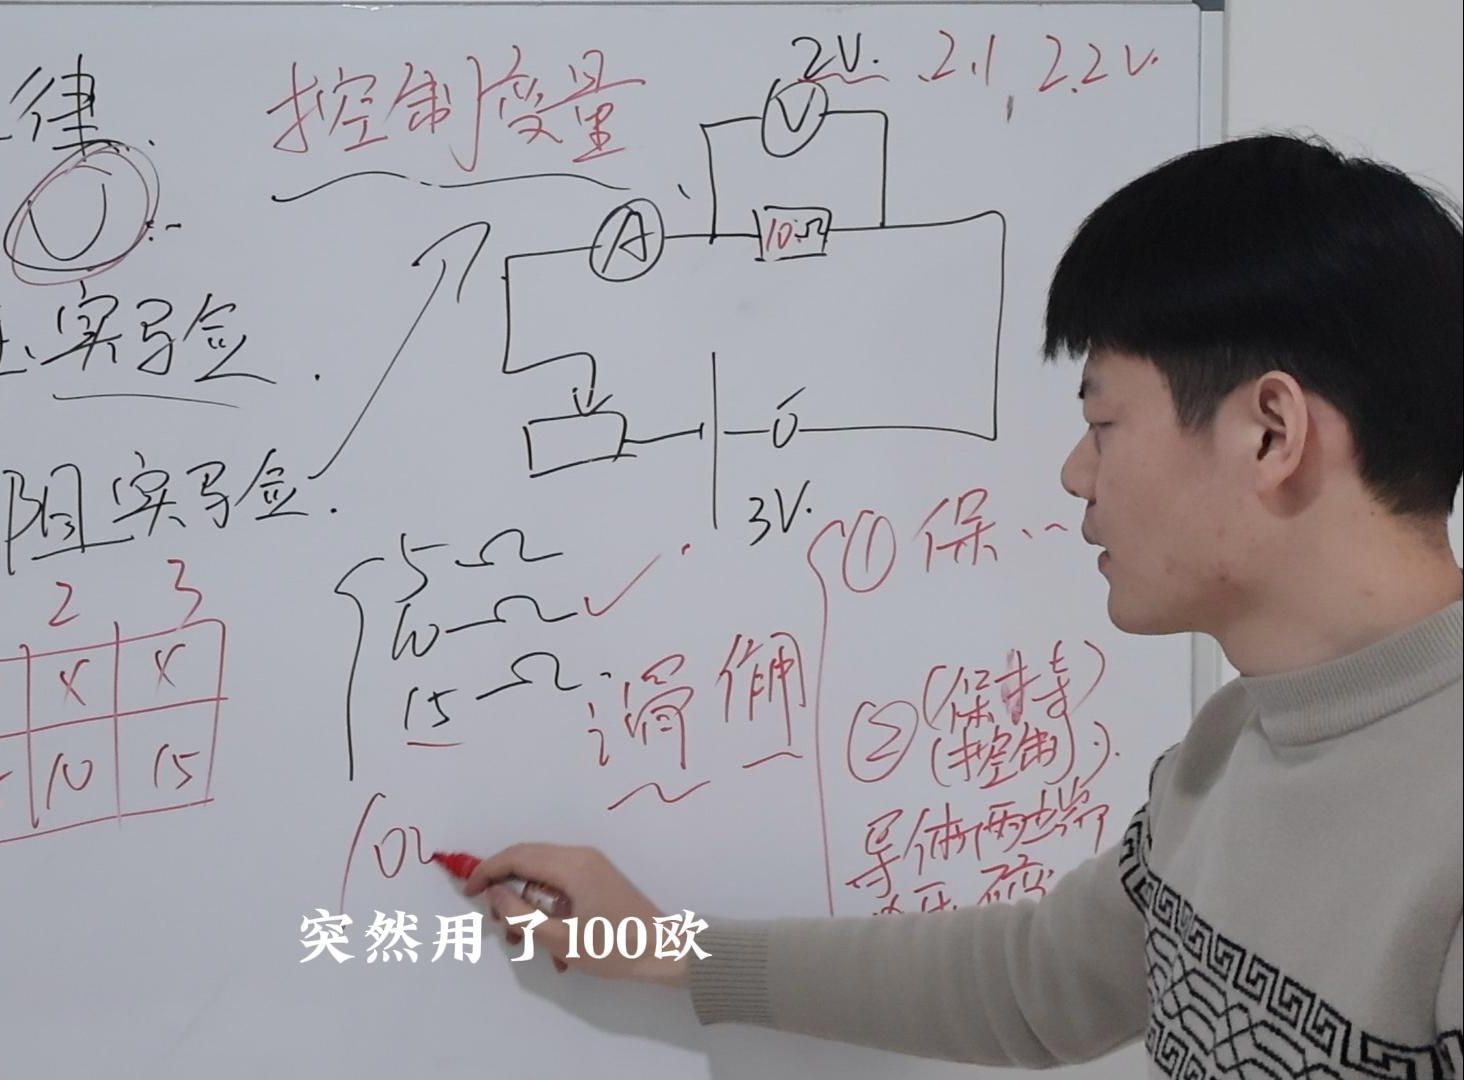 律.
控制变量
2V. 2.1, 2.2V.
V
U
A
10Ω
实验.
阻实验.
3V.
5Ω
10Ω
15Ω.
2 3
× ×
10 15
滑
① 保…
② (保持)
(控制).
导体两端
100
突然用了100欧